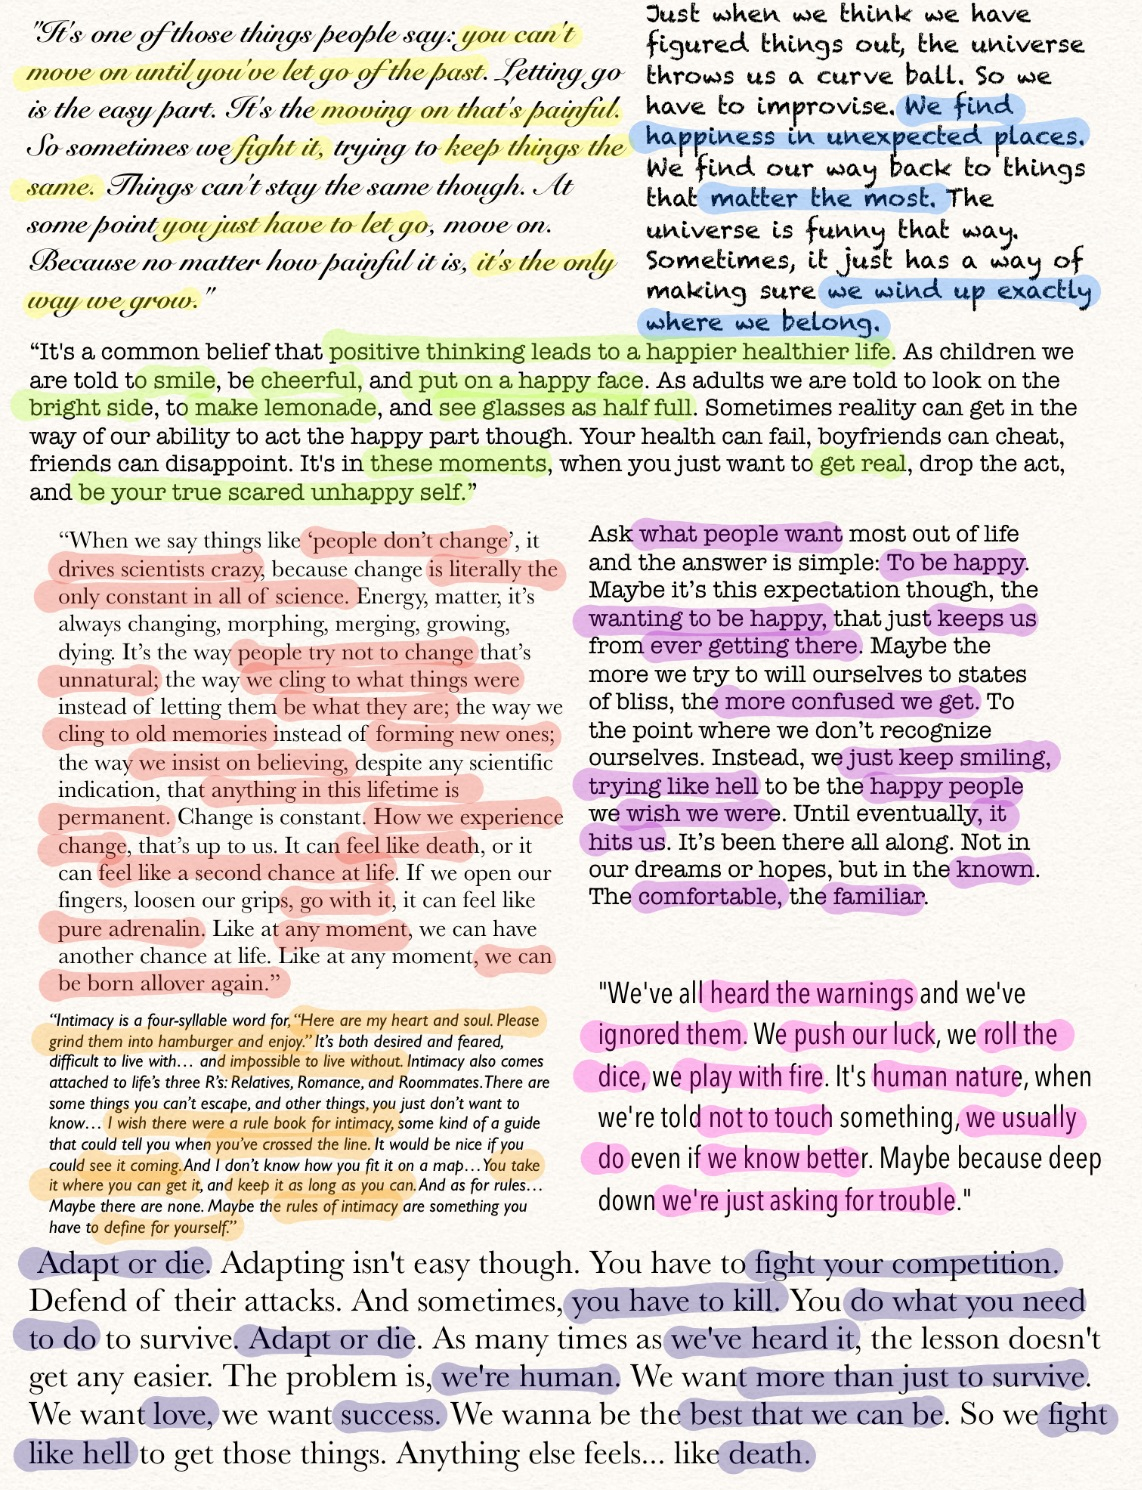 "It's one of those things people say: you can't
move on until you've let go of the past. Letting go
is the easy part. It's the moving on that's painful.
So sometimes we fight it, trying to keep things the
same. Things can't stay the same though. At
some point you just have to let go, move on.
Because no matter how painful it is, it's the only
way we grow."
Just when we think we have
figured things out, the universe
throws us a curve ball. So we
have to improvise. We find
happiness in unexpected places.
We find our way back to things
that matter the most. The
universe is funny that way.
Sometimes, it just has a way of
making sure we wind up exactly
where we belong.
“It's a common belief that positive thinking leads to a happier healthier life. As children we
are told to smile, be cheerful, and put on a happy face. As adults we are told to look on the
bright side, to make lemonade, and see glasses as half full. Sometimes reality can get in the
way of our ability to act the happy part though. Your health can fail, boyfriends can cheat,
friends can disappoint. It's in these moments, when you just want to get real, drop the act,
and be your true scared unhappy self.”
“When we say things like ‘people don’t change’, it
drives scientists crazy, because change is literally the
only constant in all of science. Energy, matter, it’s
always changing, morphing, merging, growing,
dying. It’s the way people try not to change that’s
unnatural; the way we cling to what things were
instead of letting them be what they are; the way we
cling to old memories instead of forming new ones;
the way we insist on believing, despite any scientific
indication, that anything in this lifetime is
permanent. Change is constant. How we experience
change, that’s up to us. It can feel like death, or it
can feel like a second chance at life. If we open our
fingers, loosen our grips, go with it, it can feel like
pure adrenalin. Like at any moment, we can have
another chance at life. Like at any moment, we can
be born allover again.”
Ask what people want most out of life
and the answer is simple: To be happy.
Maybe it’s this expectation though, the
wanting to be happy, that just keeps us
from ever getting there. Maybe the
more we try to will ourselves to states
of bliss, the more confused we get. To
the point where we don’t recognize
ourselves. Instead, we just keep smiling,
trying like hell to be the happy people
we wish we were. Until eventually, it
hits us. It’s been there all along. Not in
our dreams or hopes, but in the known.
The comfortable, the familiar.
“Intimacy is a four-syllable word for, “Here are my heart and soul. Please
grind them into hamburger and enjoy.” It’s both desired and feared,
difficult to live with… and impossible to live without. Intimacy also comes
attached to life’s three R’s: Relatives, Romance, and Roommates. There are
some things you can’t escape, and other things, you just don’t want to
know… I wish there were a rule book for intimacy, some kind of a guide
that could tell you when you’ve crossed the line. It would be nice if you
could see it coming. And I don’t know how you fit it on a map… You take
it where you can get it, and keep it as long as you can. And as for rules…
Maybe there are none. Maybe the rules of intimacy are something you
have to define for yourself.”
"We've all heard the warnings and we've
ignored them. We push our luck, we roll the
dice, we play with fire. It's human nature, when
we're told not to touch something, we usually
do even if we know better. Maybe because deep
down we're just asking for trouble."
Adapt or die. Adapting isn't easy though. You have to fight your competition.
Defend of their attacks. And sometimes, you have to kill. You do what you need
to do to survive. Adapt or die. As many times as we've heard it, the lesson doesn't
get any easier. The problem is, we're human. We want more than just to survive.
We want love, we want success. We wanna be the best that we can be. So we fight
like hell to get those things. Anything else feels... like death.